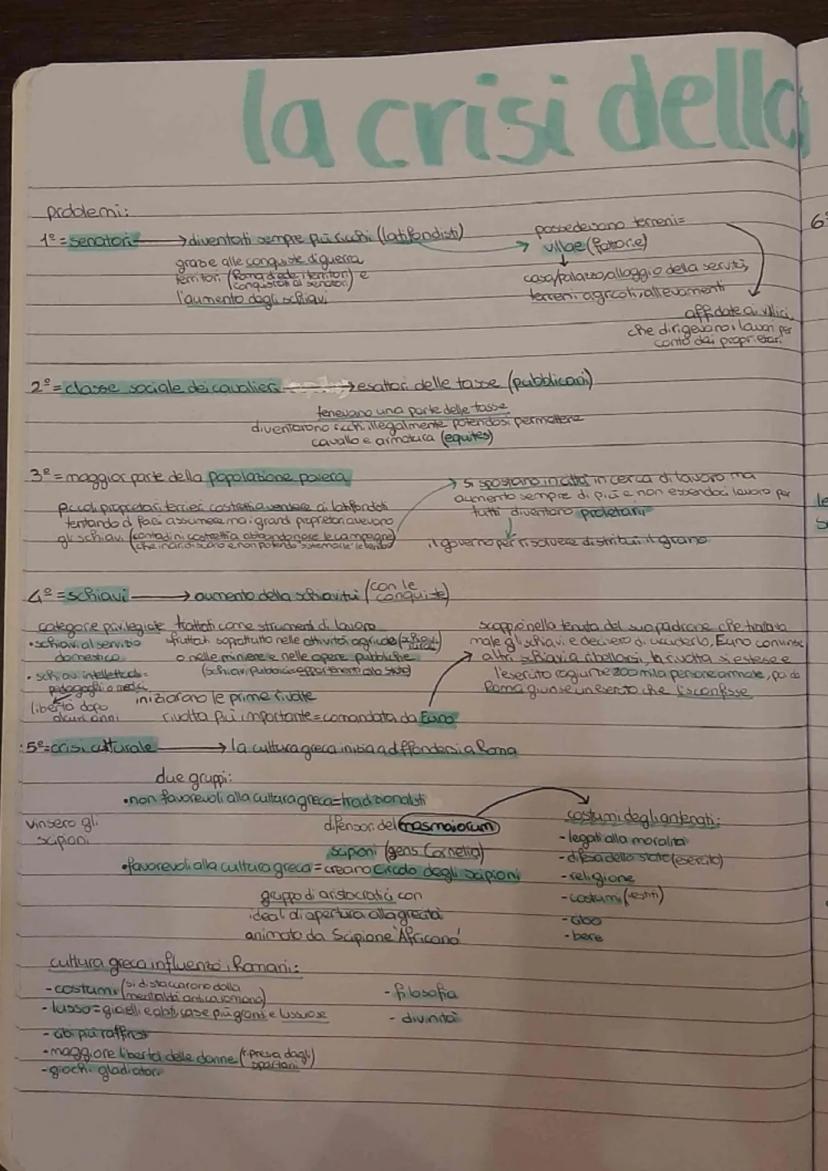 la crisi della
problemi:
1º = senatori → diventati sempre più ricchi (latifondisti)
grazie alle conquiste di guerra
territori (Roma diede i territori conquistati ai senatori) e
l'aumento degli schiavi
possedevano terreni =
villae (fattorie)
casa/palazzo, alloggio della servitù,
terreni agricoli, allevamenti
affidate ai villici
che dirigevano i lavori per
conto dei proprietari
2º = classe sociale dei cavalieri → esattori delle tasse (pubblicani)
tenevano una parte delle tasse
diventarono ricchi illegalmente potendosi permettere
cavallo e armatura (equites)
3º = maggior parte della popolazione povera
piccoli proprietari terrieri costretti a vendere ai latifondisti
tentando di farsi assumere ma i grandi proprietari avevano
gli schiavi (contadini costretti a abbandonare le campagne
che inaridiscono e non potendo sistemarle le
si spostano in città in cerca di lavoro ma
aumento sempre di più e non essendoci lavoro per
tutti diventano proletarii
il governo per risolvere distribuì il grano
4º = schiavi → aumento della schiavitù (con le conquiste)
categorie privilegiate
• schiavi al servizio
domestico
• schiavi intellettuali =
pedagoghi o medici
libertà dopo
alcuni anni
trattati come strumenti di lavoro
sfruttati soprattutto nelle attività agricole (schiavi rurali)
o nelle miniere e nelle opere pubbliche
(schiavi pubblici = appartenenti allo Stato)
iniziarono le prime rivolte
rivolta più importante = comandata da Euno
scoppiò nella tenuta del suo padrone che trattava
male gli schiavi e decisero di ucciderlo, Euno convinse
altri schiavi a ribellarsi, la rivolta si estese e
l'esercito raggiunse 200 mila persone armate, poi da
Roma giunse un esercito che li sconfisse
5º = crisi culturale → la cultura greca inizia a diffondersi a Roma
due gruppi:
• non favorevoli alla cultura greca = tradizionalisti
difensori del mos maiorum
vinsero gli
scipioni
scipioni (gens Cornelia)
• favorevoli alla cultura greca = creano circolo degli scipioni
gruppo di aristocratici con
ideali di apertura alla grecità
animato da Scipione 'Africano'
costumi degli antenati:
- legati alla moralità
- difesa dello stato (esercito)
- religione
- costumi (vestiti)
- cibo
- bere
cultura greca influenzò i Romani:
- costumi (si distaccarono dalla mentalità antica romana)
- lusso = gioielli e abiti, case più grandi e lussuose
- cibi più raffinati
- maggiore libertà delle donne (ripresa dagli spartani)
- giochi gladiatori
- filosofia
- divinità
6º